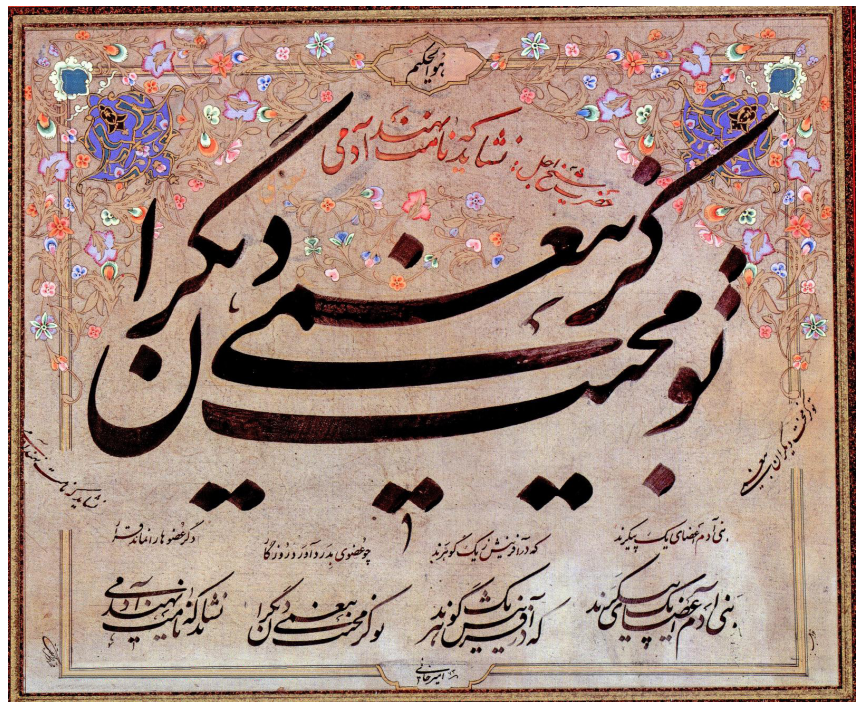 هوالحکیم
حضرت شیخ اجل: نشاید که نامت نهند آدمی
تو کز محنت دیگران بیغمی
تو کز محنت دیگران بیغمی
نشاید که نامت نهند آدمی
بنی آدم اعضای یک پیکرند که در آفرینش ز یک گوهرند چو عضوی بدرد آورد روزگار دگر عضوها را نماند قرار
بنی آدم اعضای یک پیکرند که در آفرینش ز یک گوهرند تو کز محنت دیگران بیغمی نشاید که نامت نهند آدمی
امیرخانی